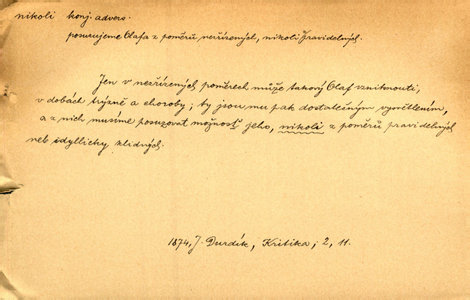 nikoli konj. advers.
posuzujeme Olafa z poměrů neřízených, nikoli pravidelných.
Jen v neřízených poměrech může takový Olaf vzniknouti,
v dobách trýzně a choroby; ty jsou mu pak dostatečným vysvětlením,
a z nich musíme posuzovat možnosť jeho, nikoli z poměrů pravidelných
neb idyllicky klidných.
1874, J. Durdík, Kritika, 2, 11.